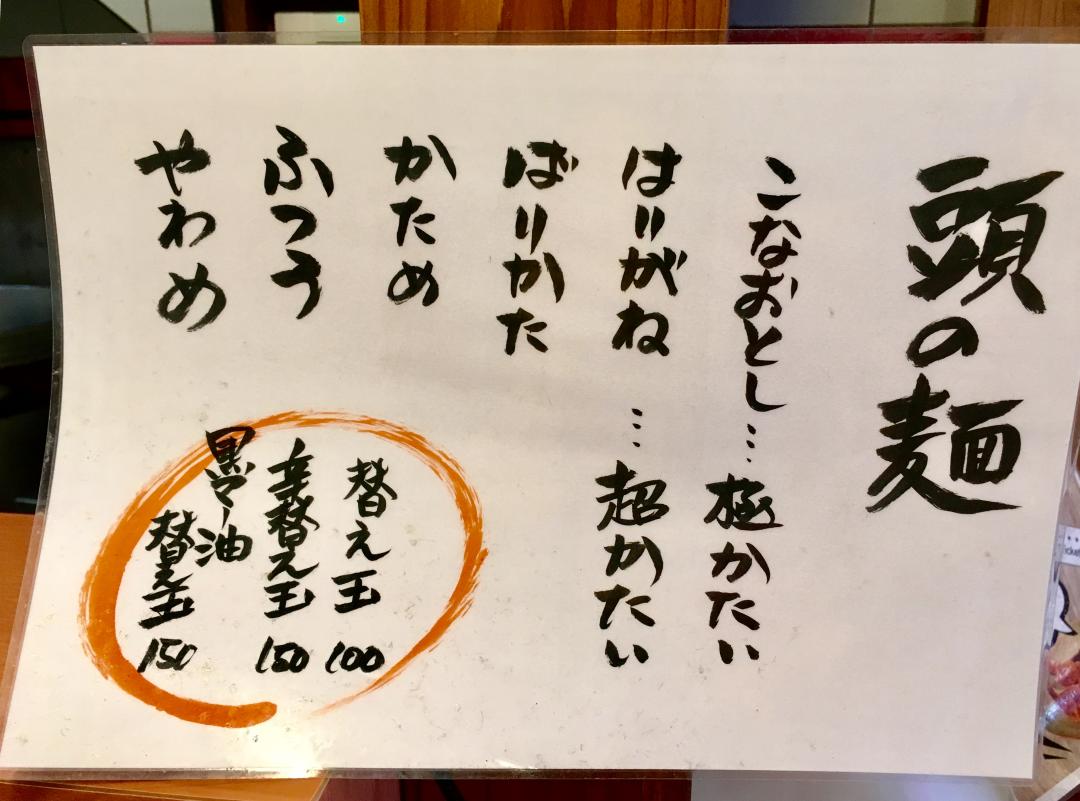 頭の麺
こなおとし…極かたい
はりがね…超かたい
ばりかた
かため
ふつう
やわめ
替え玉 100
辛替え玉 150
黒マー油
替え玉 150